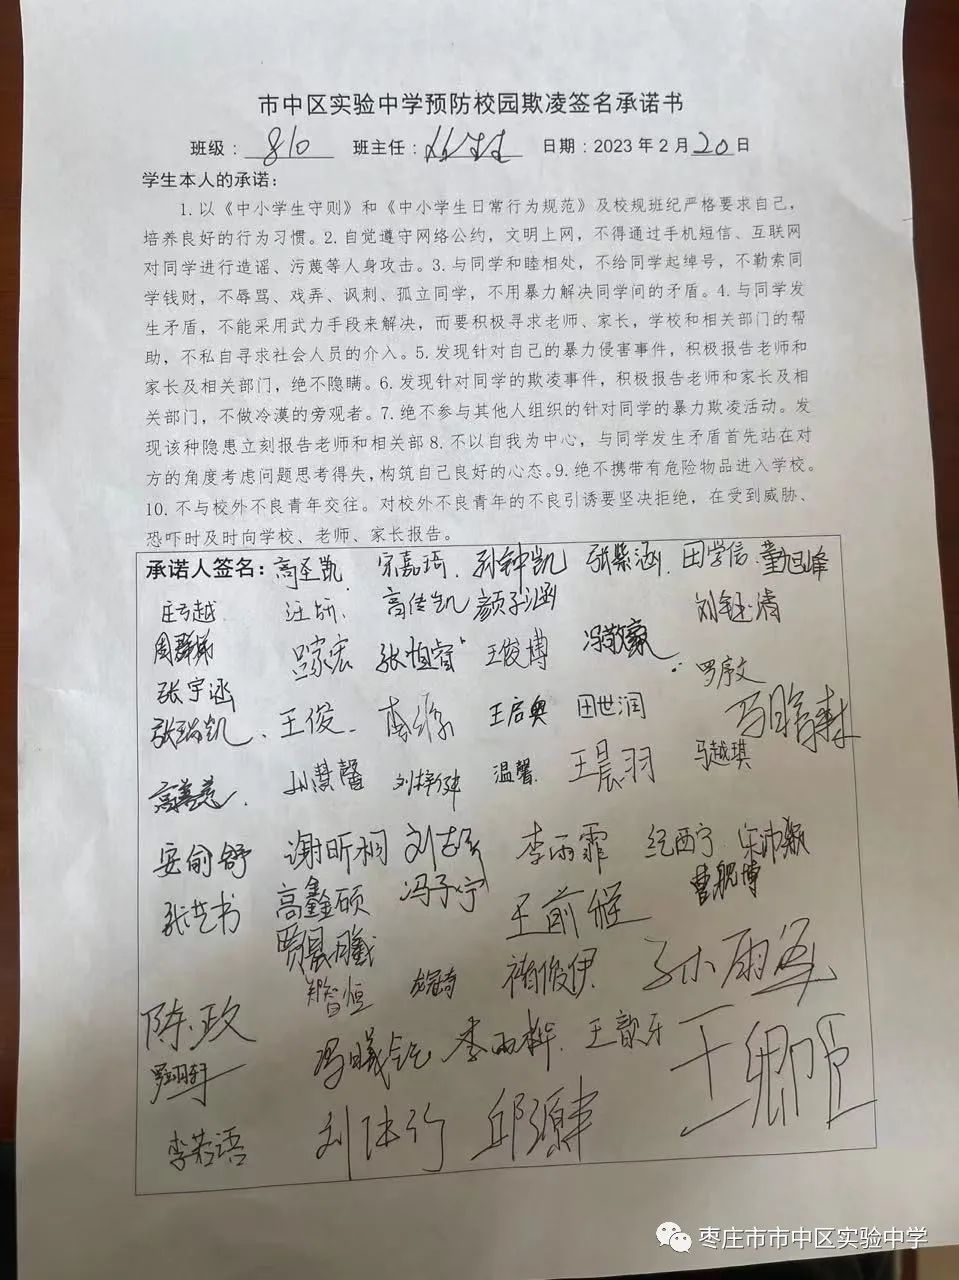 市中区实验中学预防校园欺凌签名承诺书
班级：810 班主任： 日期：2023年2月20日
学生本人的承诺：
1.以《中小学生守则》和《中小学生日常行为规范》及校规班纪严格要求自己，
培养良好的行为习惯。2.自觉遵守网络公约，文明上网，不得通过手机短信、互联网
对同学进行造谣、污蔑等人身攻击。3.与同学和睦相处，不给同学起绰号，不勒索同
学钱财，不辱骂、戏弄、讽刺、孤立同学，不用暴力解决同学间的矛盾。4.与同学发
生矛盾，不能采用武力手段来解决，而要积极寻求老师、家长，学校和相关部门的帮
助，不私自寻求社会人员的介入。5.发现针对自己的暴力侵害事件，积极报告老师和
家长及相关部门，绝不隐瞒。6.发现针对同学的欺凌事件，积极报告老师和家长及相
关部门，不做冷漠的旁观者。7.绝不参与其他人组织的针对同学的暴力欺凌活动。发
现该种隐患立刻报告老师和相关部8.不以自我为中心，与同学发生矛盾首先站在对
方的角度考虑问题思考得失，构筑自己良好的心态。9.绝不携带有危险物品进入学校。
10.不与校外不良青年交往。对校外不良青年的不良引诱要坚决拒绝，在受到威胁、
恐吓时及时向学校、老师、家长报告。
承诺人签名：高圣凯 宋嘉琦 孙钟凯 张紫涵 田学信 董旭峰
汪妍 高佳凯 颜子涵 刘钰清
张恒睿 王俊博 冯敬豪
张宇涵 罗序文
张瑞凯 王俊 王启奥 田世润
高善慈 刘慧馨 温馨 王晨羽 马越琪
安俞舒 谢昕桐 李雨霏 纪西宁 宋沛颖
张艺书 高鑫硕 冯子宁 王前程 曹舰博
郑智恒 褚俊伊
陈政 李雨桦 王歆牙
李若语 邱源丰
枣庄市市中区实验中学